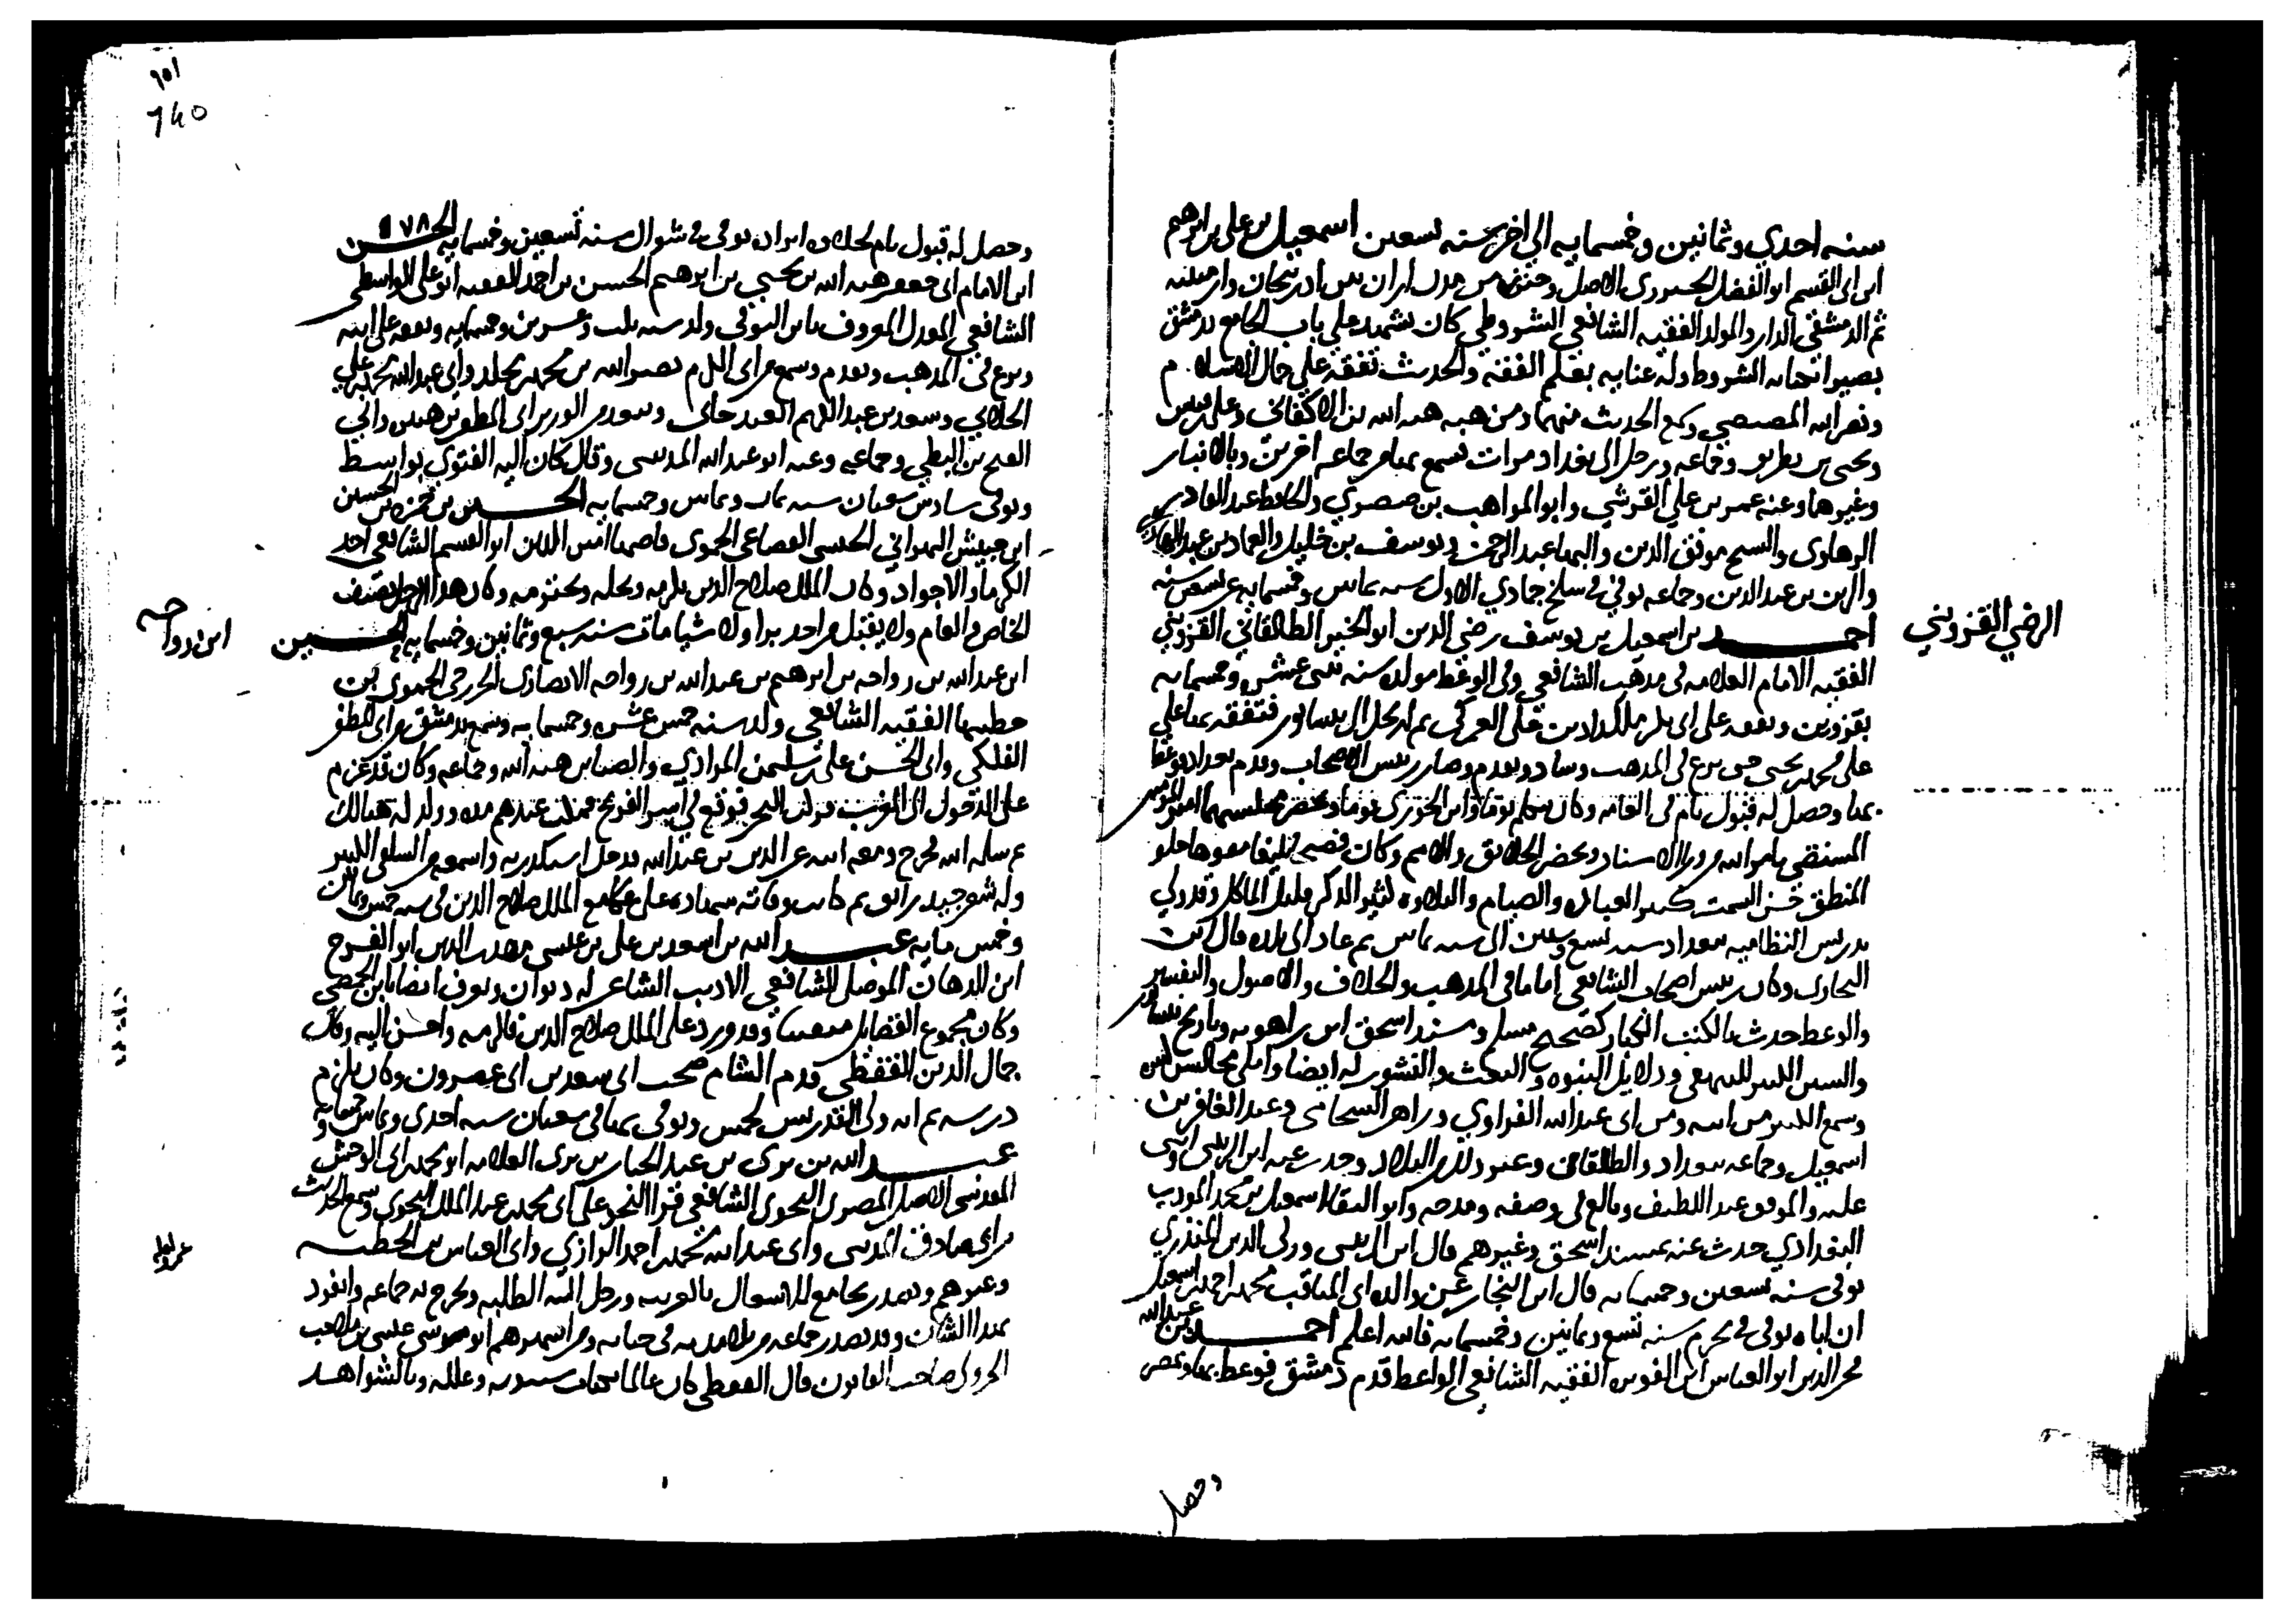 سنه احدي وثمانين وخمسمايه الي اخر سنه تسعين اسمعيل بن علي بن ابرهيم
ابن ابي القسم ابو الفضل الجنزوي الاصل وجنزه من مدن اران بين ادربيجان وارمينيه
ثم الدمشقي الدار والمولد الفقيه الشافعي الشروطي كان يشهد علي باب الجامع بدمشق
بصيرا بكتابه الشروط وله عنايه بعلم الفقه والحديث تفقه علي جمال الاسلام
ونصر الله المصيصي وسمع الحديث منهما ومن هبه الله بن الاكفاني وعلي بن قيس
ويحيي بن بطريق وجماعه ورحل الي بغداد مرات سمع بها من جماعه اخرين وبالانبار
وغيرها وعنه عمر بن علي القرشي وابو المواهب بن صصري والحافظ عبد القادر
الرهاوي والشيخ موفق الدين والبها عبد الرحمن ويوسف بن خليل والعماد بن عبد الهادي
والزين بن عبد الدين وجماعه توفي في سلخ جمادي الاول سنه ثمانين وخمسمايه عن تسعين سنه
الرضي القزويني
احمد بن اسمعيل بن يوسف رضي الدين ابو الخير الطالقاني القزويني
الفقيه الامام العلامه في مذهب الشافعي وفي الوعظ مولده سنه ثنتي عشره وخمسمايه
بقزوين وتفقه علي ابي بكر ملكداد بن علي العمركي ثم ارتحل الي نيسابور فتفقه بها علي
علي محمد بن يحيي حتي برع في المذهب وساد وتقدم وصار رييس الاصحاب وقدم بغداد فوعظ
بها وحصل له قبول تام في العامه وكان يتكلم يوما وابن الجوزي يوما ويحضر مجلسهما امير المومنين
المستضي بامر الله من ورا الاستار ويحضر الخلايق والامم وكان فصيحا بليغا مفوها حلو
المنطق حسن السمت كثير العباده والصيام والتلاوه كثير الذكر قليل الماكل وقد ولي
تدريس النظاميه ببغداد سنه تسع وستين الي سنه ثمانين ثم عاد الي بلده قال ابن
النجار وكان رييس اصحاب الشافعي اماما في المذهب والخلاف والاصول والتفسير
والوعظ حدث بالكتب الكبار كصحيح مسلم ومسند اسحق ابن راهويه وتاريخ نيسابور
والسنن الكبير للبيهقي ودلايل النبوه والبعث والنشور له ايضا واملي مجالس
وسمع الكثير من ابيه ومن ابي عبد الله الفراوي وزاهر الشحامي وعبد الغافر بن
اسمعيل وجماعه ببغداد والطالقان وغير ذلك من البلاد وحدث عنه ابن الدبيثي واثني
عليه والموفق عبد اللطيف وبالغ في وصفه ومدحه وابو البقا اسمعيل بن محمد المودب
البغدادي حدث عنه بمسند اسحق وغيرهم قال ابن الدبيثي وزكي الدين المنذري
توفي سنه تسعين وخمسمايه قال ابن النجار عن والده ابي المناقب محمد بن احمد بن اسمعيل
ان اباه توفي في محرم سنه تسع وثمانين وخمسمايه فالله اعلم احمد بن عبد الله
فخر الدين ابو العباس ابن الفقيه الشافعي الواعظ قدم دمشق فوعظ بها وبمصر
وحصل
٩٥١
640
وحصل له قبول تام لحلاوه ايراده توفي في شوال سنه تسعين وخمسمايه الحسن
١٧٨
ابن الامام ابي جعفر هبه الله بن يحيي بن ابرهيم الحسن بن احمد الفقيه ابو علي الواسطي
الشافعي المعدل المعروف بابن البوقي ولد سنه ثلث وعشرين وخمسمايه وتفقه علي ابيه
وبرع في المذهب وتقدم وسمع من ابي الكرم نصر الله بن محمد بن مخلد وابي عبد الله محمد بن علي
الجلابي وسعد بن عبد الكريم الغندجاني وسمع من الوزير ابي المظفر بن هبيره وابي
الفتح بن البطي وجماعه وعنه ابو عبد الله الدبيثي وقال كان اليه الفتوي بواسط
وتوفي سادس شعبان سنه ثمان وثمانين وخمسمايه الحسين بن حمزه بن الحسين
ابن حبيش البهراني الحبشي القضاعي الحموي قاضيها امين الدين ابو القسم الشافعي احد
الكرما والاجواد وكان الملك صلاح الدين يكرمه ويجله ويحترمه وكان هذا الرجل يضيف
الخاص والعام ولا يقبل من احد برا ولا شيا مات سنه سبع وثمانين وخمسمايه الحسين
ابن رواحه
ابن عبد الله بن رواحه بن ابرهيم بن عبد الله بن رواحه الانصاري الخزرجي الحموي ابن
خطيبها الفقيه الشافعي ولد سنه خمس عشره وخمسمايه وسمع بدمشق من ابي المظفر
الفلكي وابي الحسن علي بن سليمن المرادي والصاين هبه الله وجماعه وكان قد عزم
علي الدخول الي المغرب فركب البحر فوقع في اسر الفرنج فمكث عندهم مده وولد له هنالك
ثم سلمه الله فخرج ومعه ابنه عز الدين بن عبد الله فدخل اسكندريه واسمعه من السلفي الكثير
وله شعر جيد رايق ثم كانت وفاته شهيدا علي عكا مع الملك صلاح الدين في سنه خمس وثمانين
وخمس مايه عبد الله بن اسعد بن علي بن عيسي مهذب الدين ابو الفرج
ابن الدهان الموصلي الشافعي الاديب الشاعر له ديوان ويعرف ايضا بابن الحمصي
وكان مجموع الفضايل متفننا وقد ورد علي الملك صلاح الدين فاكرمه واحسن اليه وقال
جمال الدين القفطي قدم الشام صحب ابي سعد بن ابي عصرون وكان يلزم
درسه ثم انه ولي التدريس بحمص وتوفي بها في شعبان سنه احدي وثمانين وخمسمايه
عبد الله بن بري بن عبد الجبار بن بري العلامه ابو محمد بن ابي الوحش
المقدسي الاصل المصري النحوي الشافعي قرا النحو علي ابي محمد عبد الملك النحوي وسمع الحديث
من ابي صادق المديني وابي عبد الله محمد بن احمد الرازي وابي العباس بن الحطيه
وغيرهم وتصدر بجامع للاشتغال بالعربيه ورحل اليه الطلبه وتخرج به جماعه وانفرد
بهذا الشان وقد تصدر جماعه من تلامذته في حياته ومن اشهرهم ابو موسي عيسي بن
الجزولي صاحب القانون قال القفطي كان عالما بكتاب سيبويه وعلله وبالشواهد